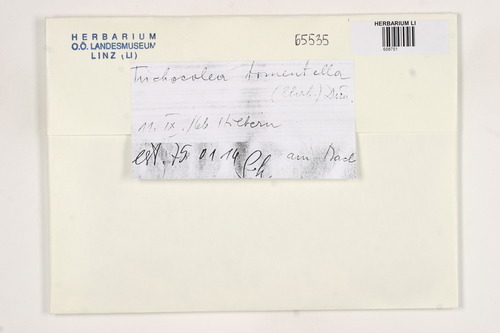 HERBARIUM
O.Ö. LANDESMUSEUM
LINZ (LI)
65535
HERBARIUM LI
Trichocolea tomentella
(Ehrh.) Dum.
11. IX. /66
75 01 14 am Bach